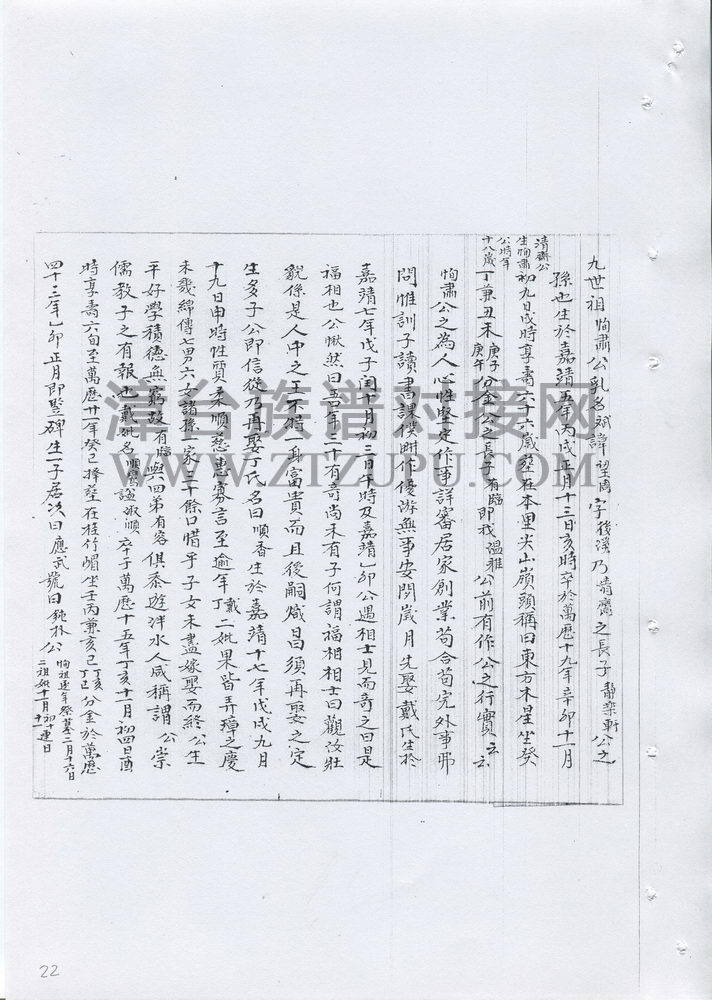 九世祖恂肅公乳名斌諱望周字後溪乃清齋之長子靜樂軒公之
孫也生於嘉靖五年丙戌正月十三日亥時卒於萬曆十九年辛卯十一月
清齋公生恂肅公時年十八歲
初九日戌時享壽六十六歲葬在本里尖山嶺頭稱曰東方木星坐癸
丁兼丑未庚子庚午分金公之長子有臨即我溫雅公前有作公之行實云云
恂肅公之為人心性堅定作事詳審居家創業苟合苟完外事弗
問惟訓子讀書課僕耕作優游無事安閑歲月先娶戴氏生於
嘉靖七年戊子閏十月初三日午時及嘉靖乙卯公遇相士見而奇之曰是
福相也公愀然曰吾年三十有奇尚未有子何謂福相相士曰觀汝壯
貌係是人中之王不特一身富貴而且後嗣熾昌須再娶之定
生多子公即信從乃再娶丁氏名曰順香生於嘉靖十七年戊戌九月
十九日申時性質柔順慈惠寡言至逾年丁戴二妣果皆弄璋之慶
未幾綿傳七男六女諸孫一家三十餘口惜乎子女未盡嫁娶而終公生
平好學積德無窮故有臨與四弟有容俱泰遊泮水人咸稱謂公崇
儒教子之有報也戴妣名順鸞謚淑順卒于萬曆十五年丁亥十一月初四日酉
時享壽六旬至萬曆廿一年癸巳擇葬在桂竹帽坐壬丙兼亥巳丁亥丁巳分金於萬曆
四十三年乙卯正月即豎碑生一子居次曰應武號曰純朴公
恂祖逐年祭墓二月十六日
二祖妣十一月初十連日
漳台族譜对接网
WWW.ZTZUPU.COM
22